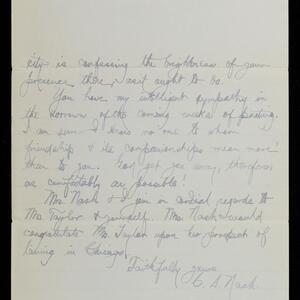 city is confessing the brightness of your
presence there, as it ought to do.
You have my intelligent sympathy in
the sorrow of the coming weeks of parting.
I am sure I know no one to whom
friendship & its companionships mean more
than to you. God get you away, therefore
as comfortably as possible!
Mrs. Nash & I join in cordial regards to
Mrs. Taylor & yourself. Mrs. Nash would
congratulate Mrs. Taylor upon her prospect of
living in Chicago.
Faithfully yours
C. S. Nash.